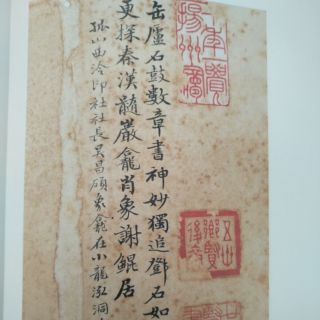 缶廬石鼓數章書神妙獨追鄧石如
更探秦漢髓巖龕肖象謝鯤居
孤山西泠印社社長吳昌碩象龕在小龍泓洞